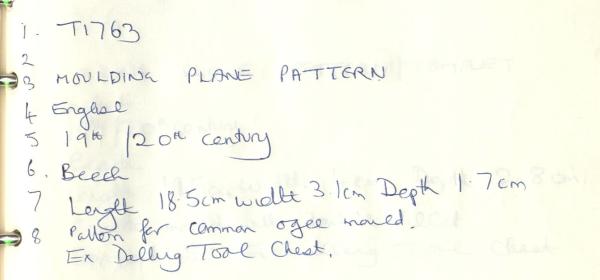 1. T1763
2
3 MOULDING PLANE PATTERN
4 English
5 19th / 20th century
6. Beech
7 Length 18.5cm width 3.1cm Depth 1.7cm
8 Pattern for common ogee mould.
Ex Dalling Tool Chest.